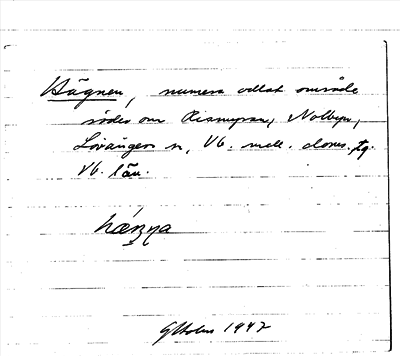 Hägnen, numera odlat område
söder om Rismyran, Nolbyn,
Lövångers sn, Vb. mell. doms. tg.
Vb. län.
GHolm 1947